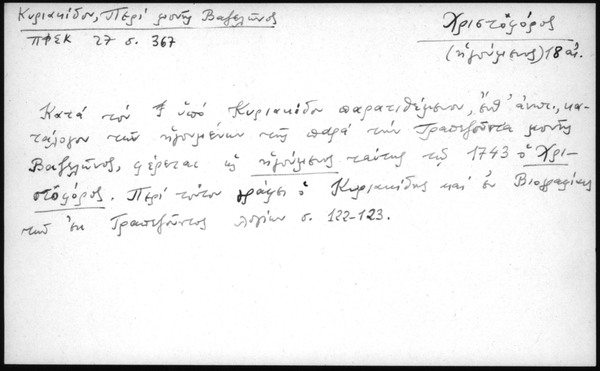 Κυριακίδου, Περί μονῆς Βαζελῶνος
ΠΦΣΚ 27 σ. 367
Χριστόφόρος
(ἡγούμενος) 18 αἰ.
Κατά τόν ὑπό Κυριακίδου παρατιθέμενον, ἔνθ' ἀνωτ., κα-
τάλογον τῶν ἡγουμένων τῆς παρά τήν Τραπεζοῦντα μονῆς
Βαζελῶνος, φέρεται ὡς ἡγούμενος ταύτης τῷ 1743 ὁ Χρι-
στόφόρος. Περί τούτου γράφει ὁ Κυριακίδης καί ἐν Βιογραφίαις
τῶν ἐκ Τραπεζοῦντος λογίων σ. 122-123.